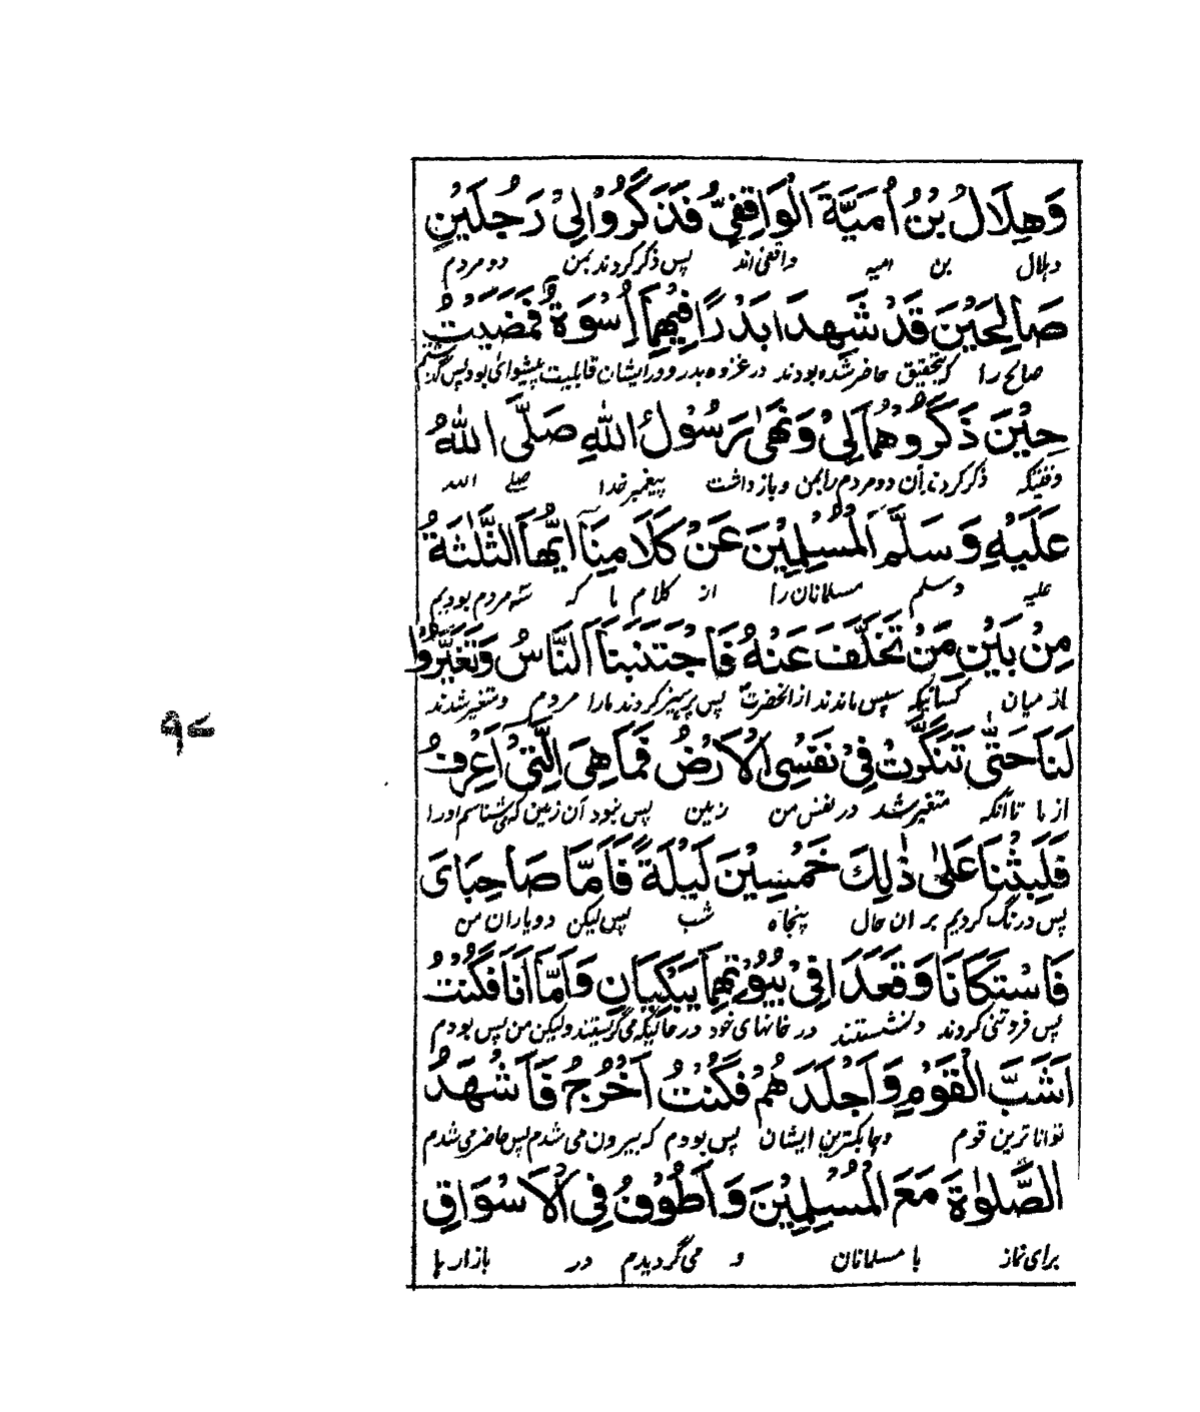 وَهِلَالُ بْنُ اُمَيَّةَ الْوَاقِفِيُّ فَذَكَرُوْا لِيْ رَجُلَيْنِ
وہلال بن امیہ واقفی اند پس ذکر کردند بمن دو مردم
صَالِحَيْنِ قَدْ شَهِدَا بَدْرًا فِيْهِمَا اُسْوَةٌ فَمَضَيْتُ
صالح را کہ تحقیق حاضر شده بودند در غزوه بدر و در ایشان قابلیت پیشوائی بود پس گذشتم
حِيْنَ ذَكَرُوْهُمَا لِيْ وَنَهٰى رَسُوْلُ اللهِ صَلَّى اللهُ
وقتیکہ ذکر کردند آن دو مردم را بمن و باز داشت پیغمبر خدا صلے اللہ
عَلَيْهِ وَسَلَّمَ الْمُسْلِمِيْنَ عَنْ كَلَامِنَا اَيُّهَا الثَّلٰثَةُ
علیہ وسلم مسلمانان را از کلام ما کہ سہ مردم بودیم
مِنْ بَيْنِ مَنْ تَخَلَّفَ عَنْهُ فَاجْتَنَبَنَا النَّاسُ وَتَغَيَّرُوْا
از میان کسانیکہ سپس ماندند از آنحضرت پس پرہیز کردند مارا مردم و متغیر شدند
لَنَا حَتّٰى تَنَكَّرَتْ فِيْ نَفْسِى الْاَرْضُ فَمَا هِيَ الَّتِيْ اَعْرِفُ
از ما تا آنکہ متغیر شد در نفس من زمین پس نبود آن زمین کہ می شناسم اورا
فَلَبِثْنَا عَلٰى ذٰلِكَ خَمْسِيْنَ لَيْلَةً فَاَمَّا صَاحِبَايَ
پس درنگ کردیم بر ان حال پنجاه شب پس لیکن دو یاران من
فَاسْتَكَانَا وَقَعَدَا فِيْ بُيُوْتِهِمَا يَبْكِيَانِ وَاَمَّا اَنَا فَكُنْتُ
پس فروتنی کردند و نشستند در خانہای خود در حالیکہ می گریستند ولیکن من پس بودم
اَشَبَّ الْقَوْمِ وَاَجْلَدَهُمْ فَكُنْتُ اَخْرُجُ فَاَشْهَدُ
توانا ترین قوم و چابکترین ایشان پس بودم کہ بیرون می شدم پس حاضر می شدم
الصَّلٰوةَ مَعَ الْمُسْلِمِيْنَ وَاَطُوْفُ فِى الْاَسْوَاقِ
برای نماز با مسلمانان و می گردیدم در بازارہا